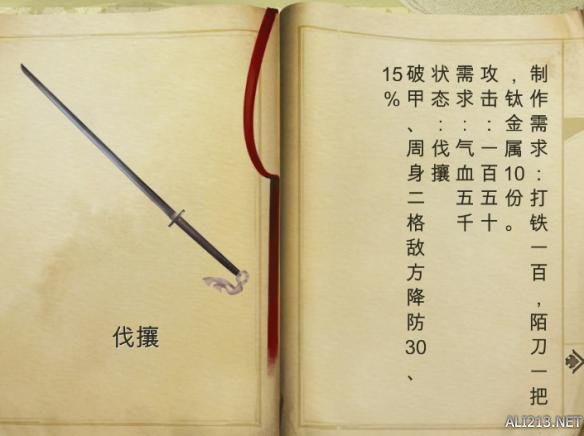 制作需求：打铁一百，陌刀一把
，钛金属10份。
攻击：一百五十
需求：气血五千
状态：伐攘
破甲、周身二格敌方降防30、
15%
伐攘
ALI213.NET